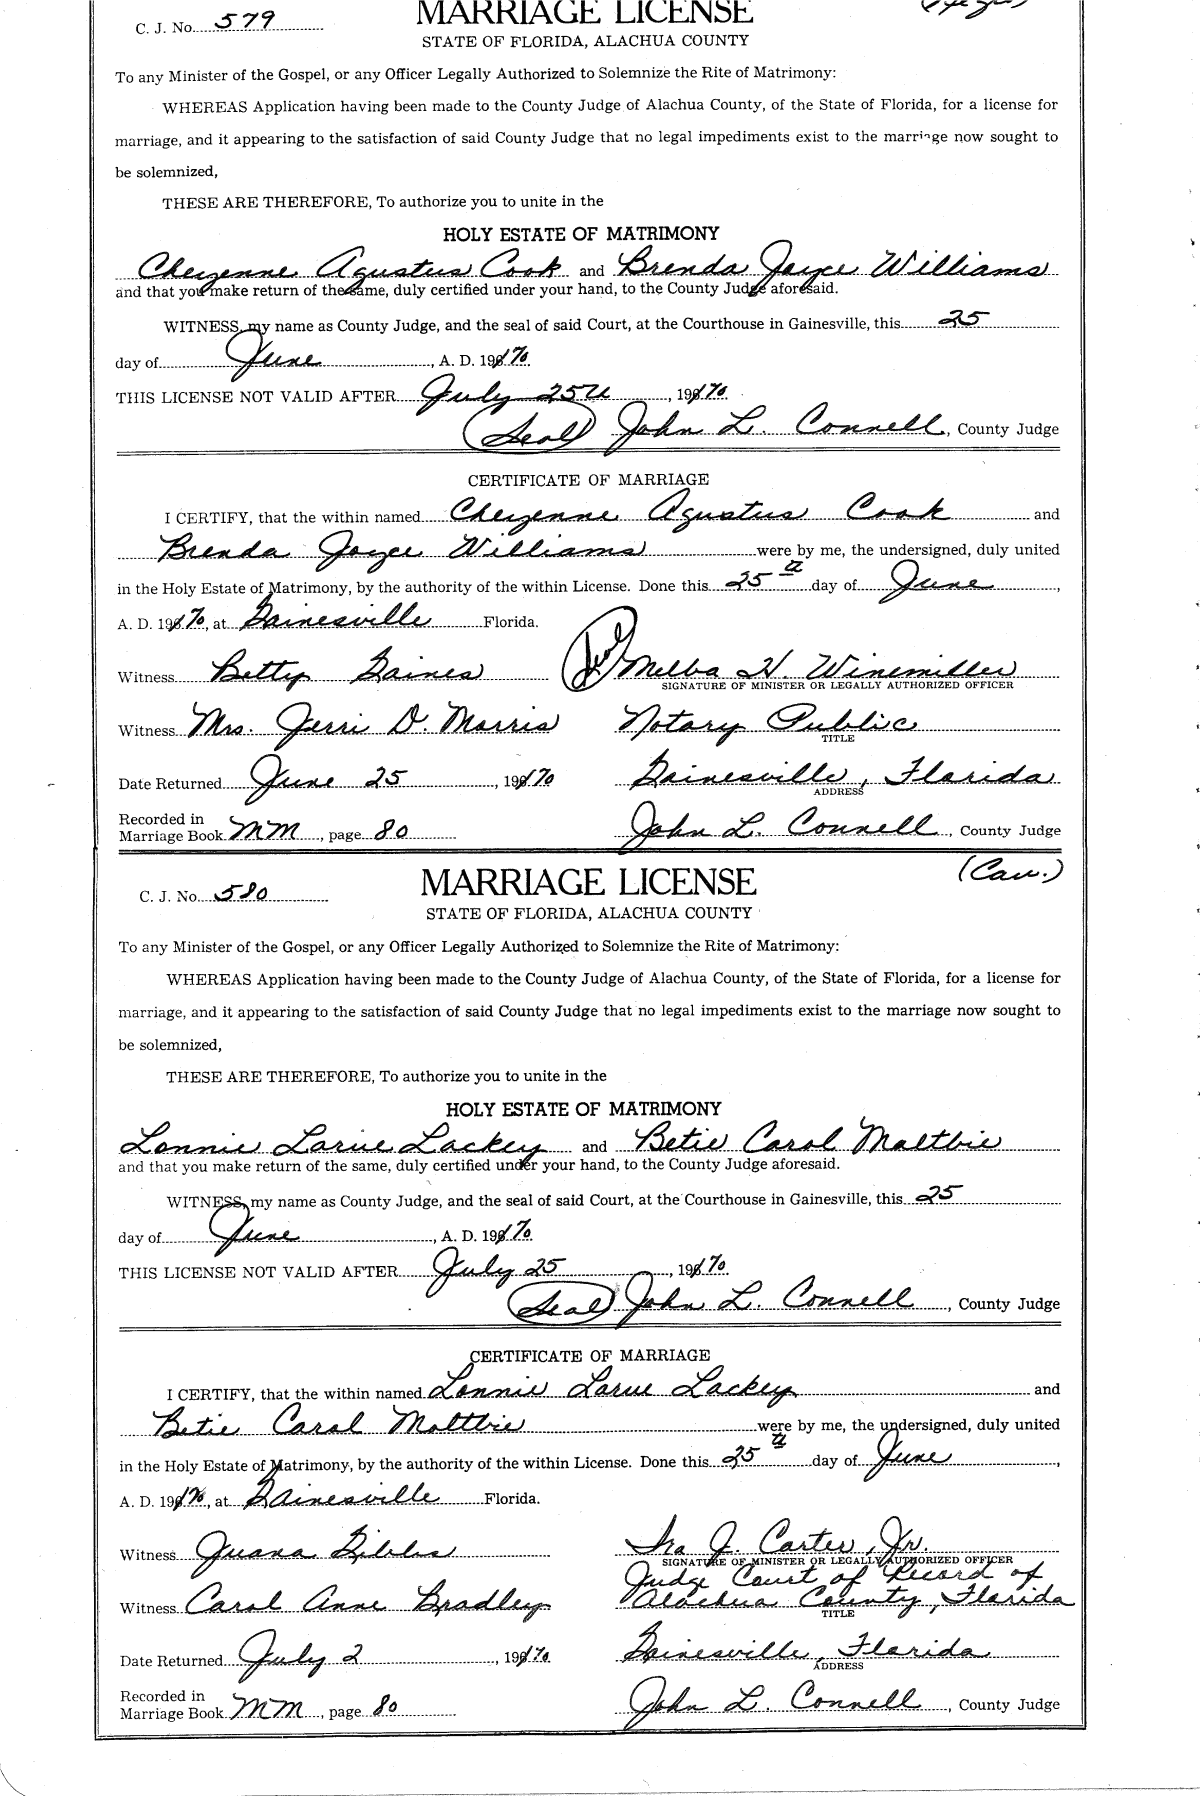 C. J. No. 579 MARRIAGE LICENSE
STATE OF FLORIDA, ALACHUA COUNTY
To any Minister of the Gospel, or any Officer Legally Authorized to Solemnize the Rite of Matrimony:
WHEREAS Application having been made to the County Judge of Alachua County, of the State of Florida, for a license for
marriage, and it appearing to the satisfaction of said County Judge that no legal impediments exist to the marriage now sought to
be solemnized,
THESE ARE THEREFORE, To authorize you to unite in the
HOLY ESTATE OF MATRIMONY
Cheyenne Agustus Cook and Brenda Joyce Williams
and that you make return of the same, duly certified under your hand, to the County Judge aforesaid.
WITNESS, my name as County Judge, and the seal of said Court, at the Courthouse in Gainesville, this 25
day of June, A. D. 1970.
THIS LICENSE NOT VALID AFTER July 25th, 1970.
(Seal) John L. Connell, County Judge
CERTIFICATE OF MARRIAGE
I CERTIFY, that the within named Cheyenne Agustus Cook and
Brenda Joyce Williams were by me, the undersigned, duly united
in the Holy Estate of Matrimony, by the authority of the within License. Done this 25th day of June,
A. D. 1970, at Gainesville Florida.
Witness Betty Gaines (Seal) Melba H. Winemiller
SIGNATURE OF MINISTER OR LEGALLY AUTHORIZED OFFICER
Witness Mrs. Jerri D. Morris Notary Public
TITLE
Date Returned June 25, 1970 Gainesville, Florida
ADDRESS
Recorded in
Marriage Book MM, page 80 John L. Connell, County Judge
(Cau.)
C. J. No. 580 MARRIAGE LICENSE
STATE OF FLORIDA, ALACHUA COUNTY
To any Minister of the Gospel, or any Officer Legally Authorized to Solemnize the Rite of Matrimony:
WHEREAS Application having been made to the County Judge of Alachua County, of the State of Florida, for a license for
marriage, and it appearing to the satisfaction of said County Judge that no legal impediments exist to the marriage now sought to
be solemnized,
THESE ARE THEREFORE, To authorize you to unite in the
HOLY ESTATE OF MATRIMONY
Lonnie Larue Lackey and Betie Carol Maltbie
and that you make return of the same, duly certified under your hand, to the County Judge aforesaid.
WITNESS, my name as County Judge, and the seal of said Court, at the Courthouse in Gainesville, this 25
day of June, A. D. 1970.
THIS LICENSE NOT VALID AFTER July 25, 1970.
(Seal) John L. Connell, County Judge
CERTIFICATE OF MARRIAGE
I CERTIFY, that the within named Lonnie Larue Lackey and
Betie Carol Maltbie were by me, the undersigned, duly united
in the Holy Estate of Matrimony, by the authority of the within License. Done this 25th day of June,
A. D. 1970, at Gainesville Florida.
Witness Juana Gibbs Ira J. Carter, Jr.
SIGNATURE OF MINISTER OR LEGALLY AUTHORIZED OFFICER
Judge Court of Record of
Witness Carol Anne Bradley Alachua County, Florida
TITLE
Date Returned July 2, 1970 Gainesville, Florida
ADDRESS
Recorded in
Marriage Book MM, page 80 John L. Connell, County Judge